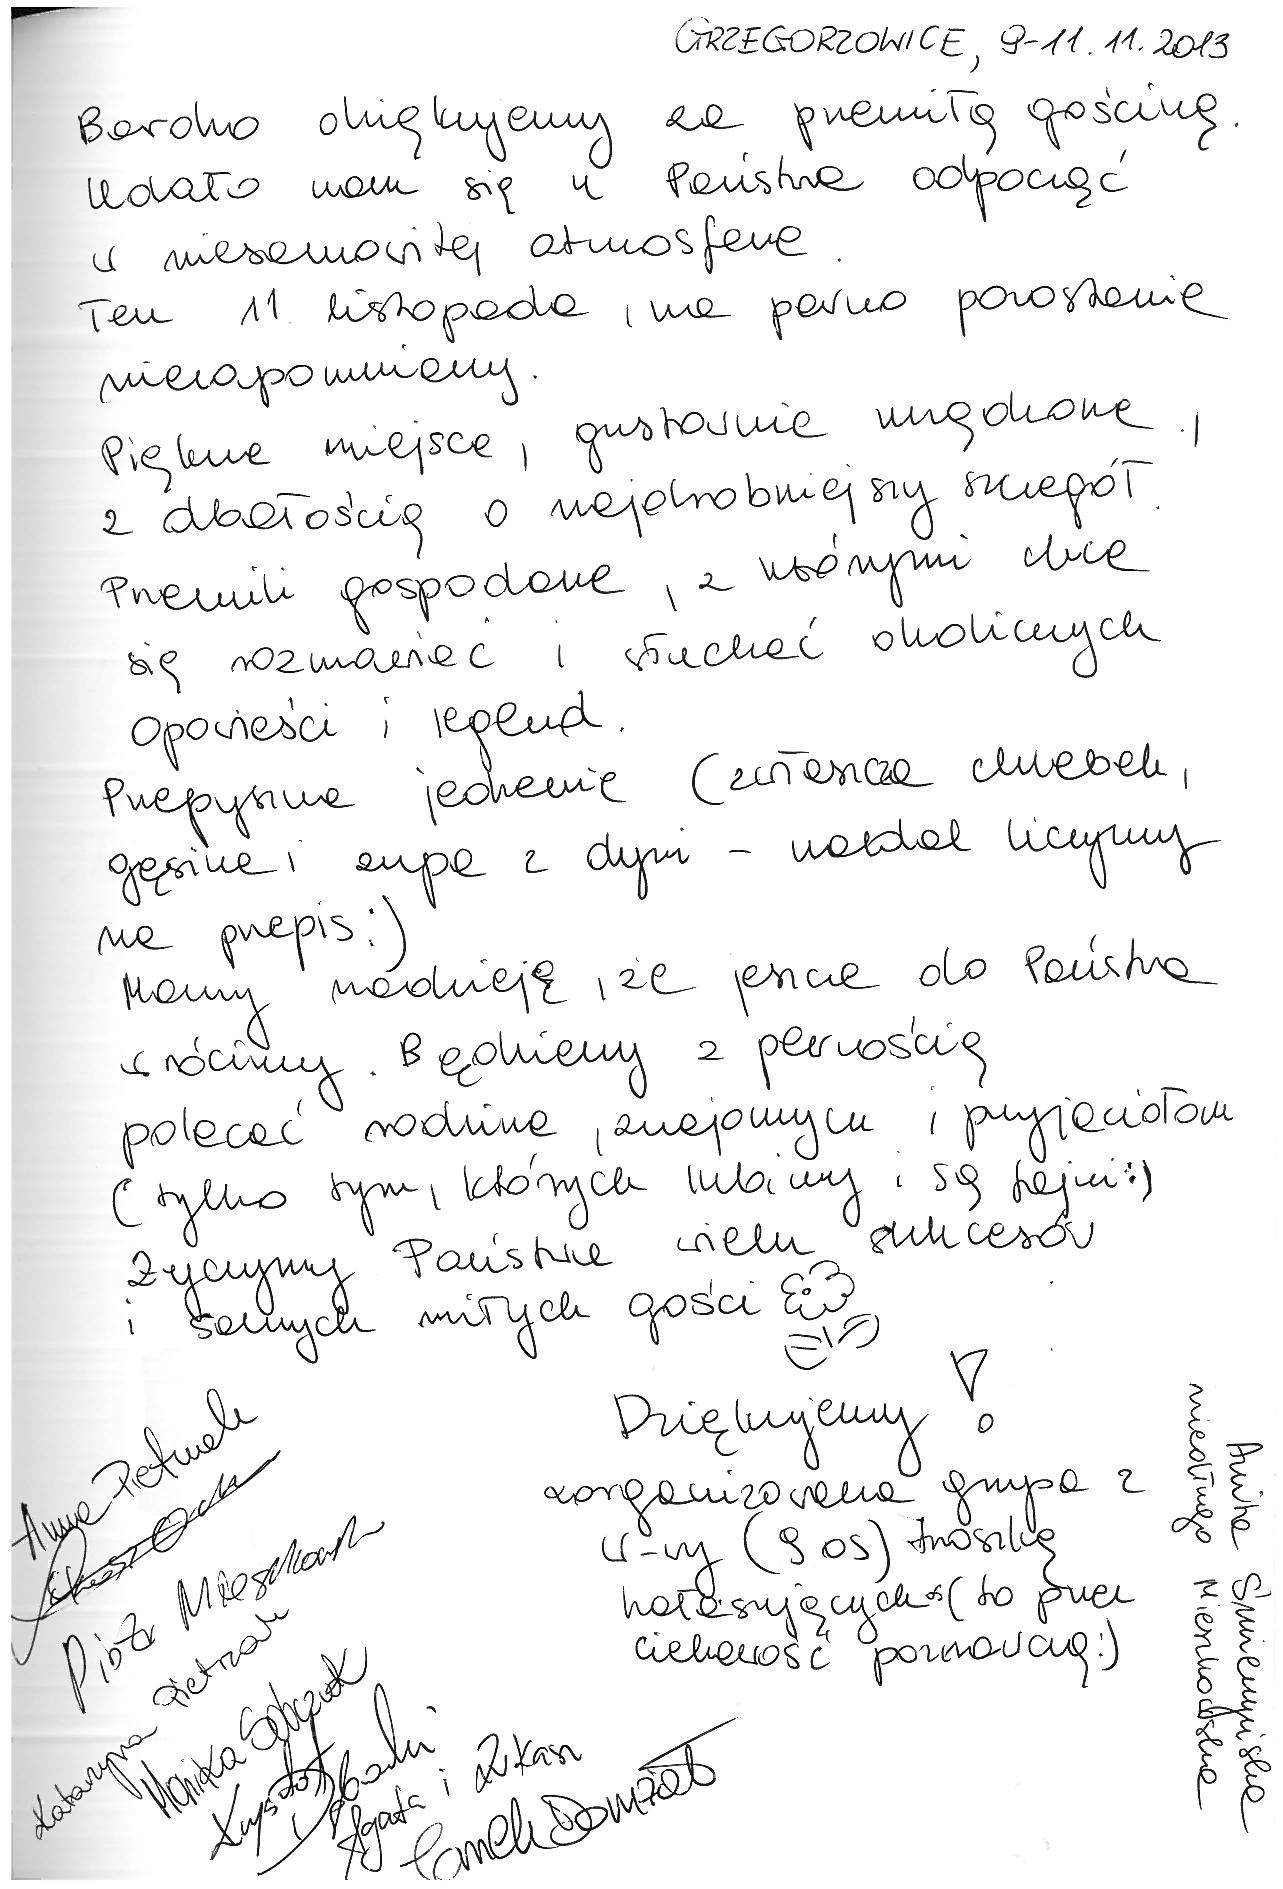 GRZEGORZOWICE, 9-11.11.2013
Bardzo dziękujemy za przemiłą gościnę.
Udało nam się u Państwa odpocząć
w niesamowitej atmosferze.
Ten 11 listopada, na pewno pozostanie
niezapomniany.
Piękne miejsce, gustownie urządzone,
z dbałością o najdrobniejszy szczegół.
Przemili gospodarze, z którymi chce
się rozmawiać i słuchać okolicznych
opowieści i legend.
Przepyszne jedzenie (zwłaszcza chlebek,
gęsina i zupa z dyni - nadal liczymy
na przepis:)
Mamy nadzieję, że jeszcze do Państwa
wrócimy. Będziemy z pewnością
polecać rodzinie, znajomym i przyjaciołom
(tylko tym, których lubimy i są fajni:)
Życzymy Państwu wielu sukcesów
i samych miłych gości
Dziękujemy!
zorganizowana grupa z
W-wy (9 os) troszkę
hałasujących (to przez
ciekawość poznawczą:)
Anna Pietrzak
Piotr Mieszkowski
Katarzyna Pietrzak
Monika Sobczuk
Krzysztof
Agata i Łukasz
Domżał
Anita
niedługo Mieszkowska